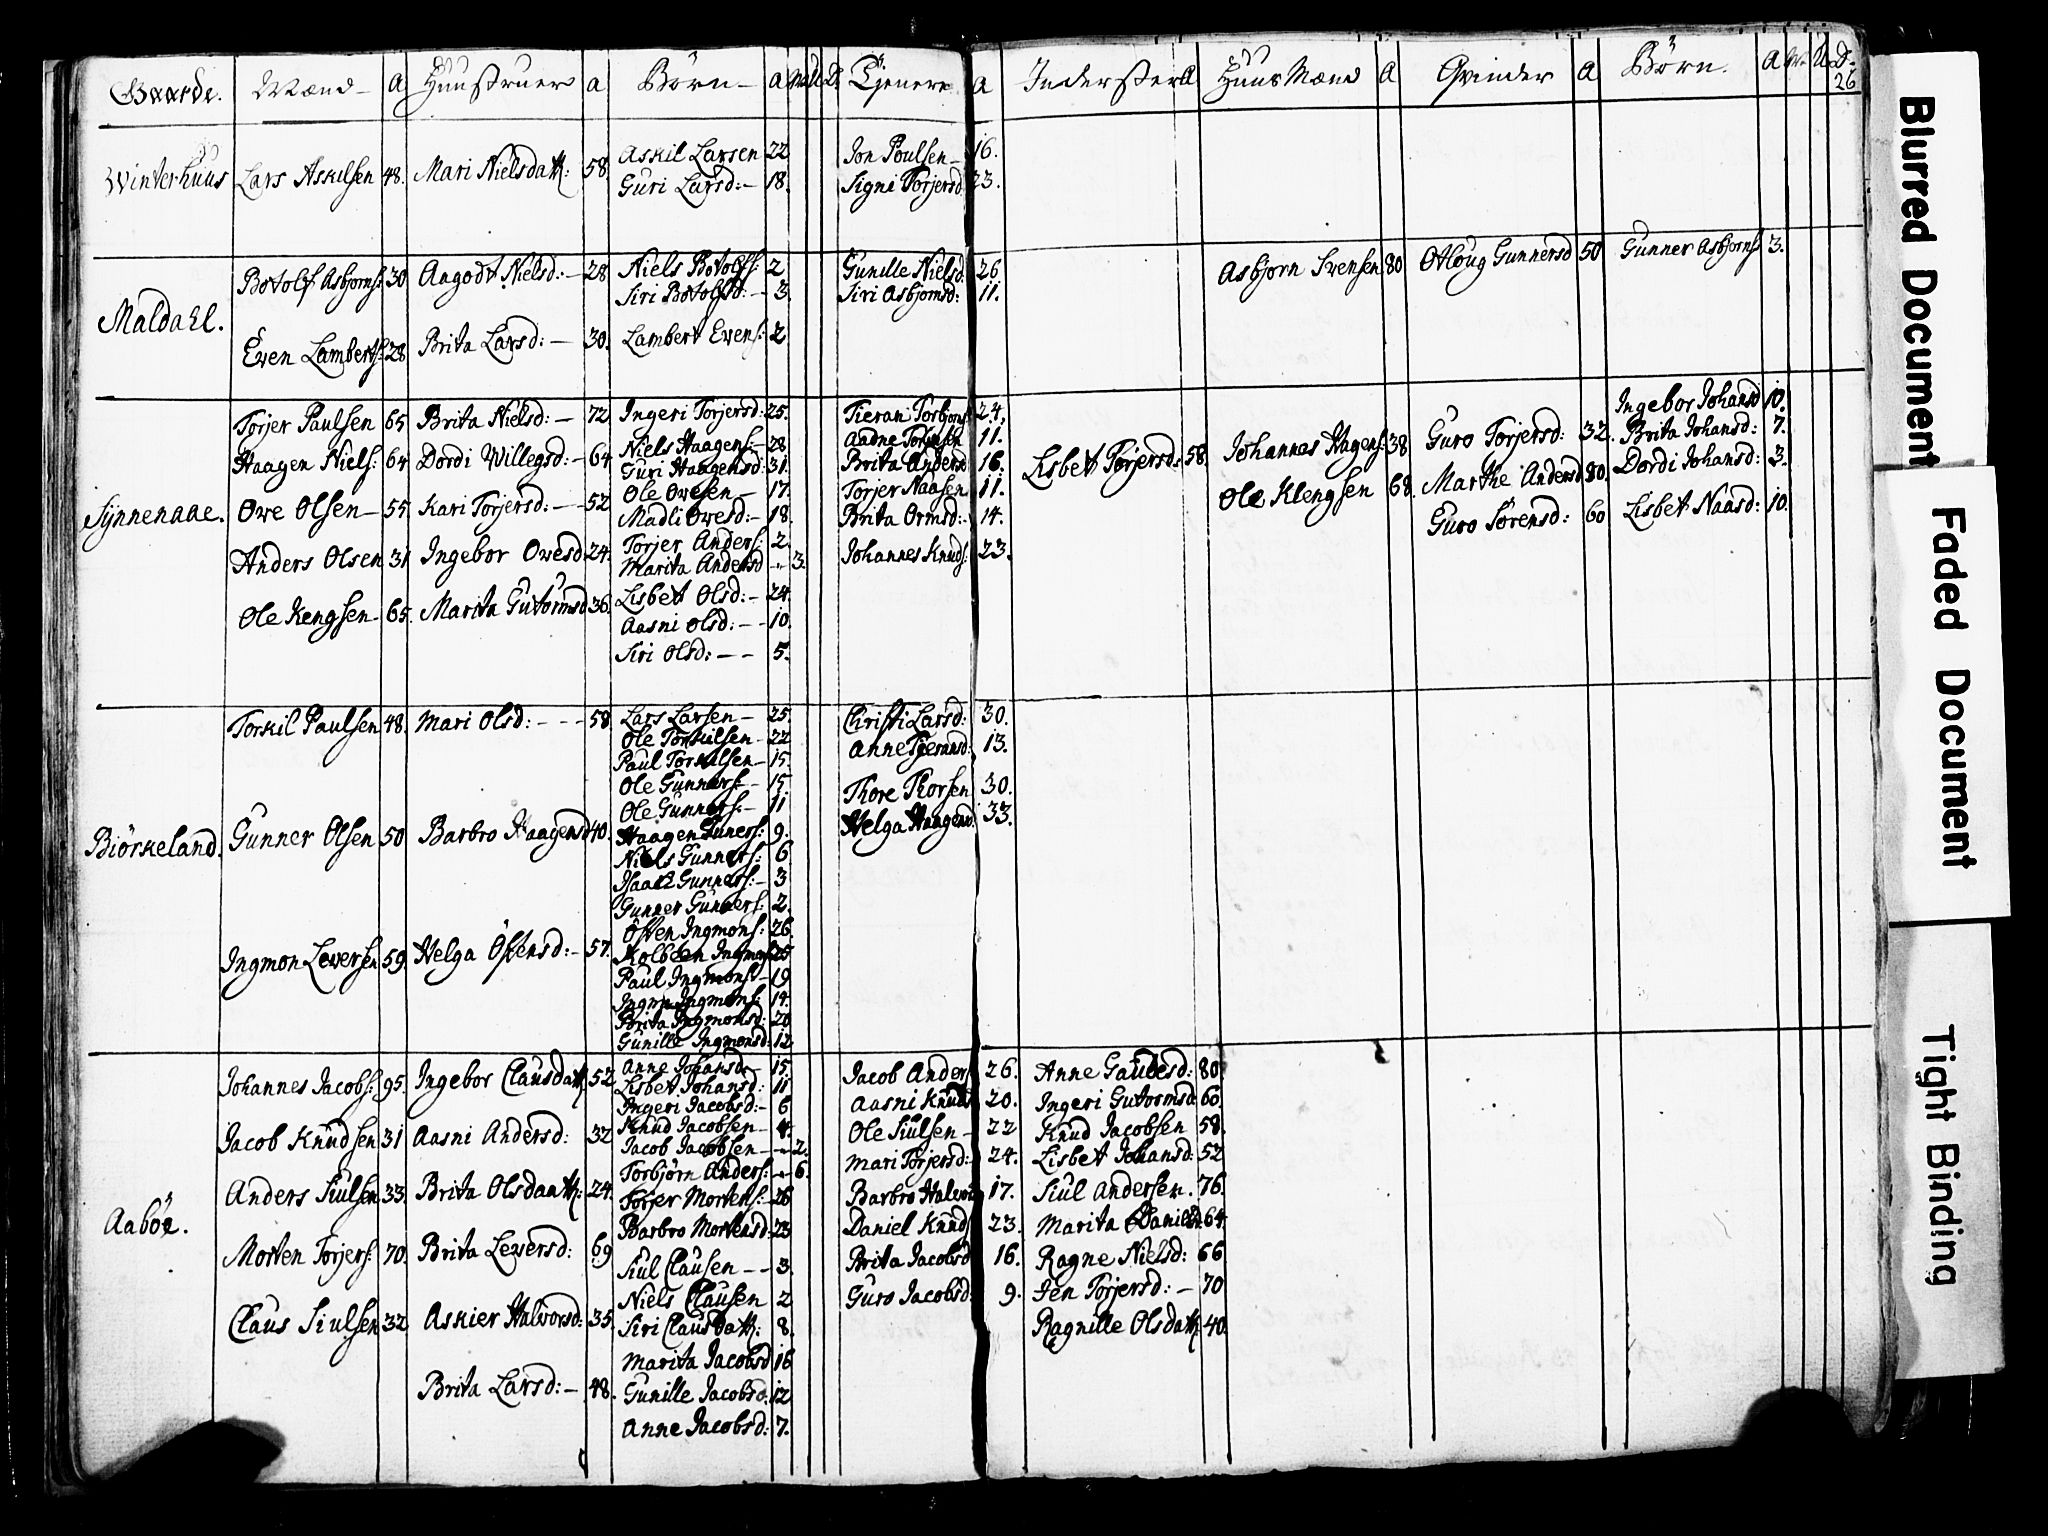 Gaarde. Mænd - A Huustruer a Börn - A M U D Tjenere a Inderster A HuusMænd A Qvinder A Börn. A M U D. 26
Winterhuus Lars Askilsen 48. Mari Nielsdatt: 58. Askil Larsen 22 Jon Poulsen - 16.
Guri Larsd: - 18. Signi Torjersd 23.
Maldahl. Botolf Asbjorns: 30 Aagodt Nielsd: - 28 Niels Botolfs: 2 Gunille Nielsd 26 Asbjorn Svensen 80 Otloug Gunnersd 50 Gunner Asbjorns 3.
Siri Botolfsd: - 3. Siri Asbjornsd: 11.
Even Lamberts: 28 Brita Larsd: - 30. Lambert Evens: 2
Synnenaae. Torjer Paulsen 65 Brita Nielsd: - 72 Ingeri Torjersd: 25. Tieran Torbjorns 24. Lisbet Torjersd: 58. Johannes Hagens: 38 Guro Torjersd: 32. Ingebor Johansd 10.
Haagen Niels: 64 Dordi Willegsd: - 64 Niels Haagens: - 28 Aadne 11. Brita Johansd: 7.
Guri Haagensd: 31. Brita Andersd 16. Ole Klengsen 68. Marthe Andersd 80. Dordi Johansd: 3.
Ove Olsen - 55. Kari Torjersd: - 52 Ole Ovesen - 17. Torjer Naasen 11. Guro Sörensd: 60 Lisbet Naasd: 10.
Madli Ovesd: - 18. Brita Ormsd: - 14.
Anders Olsen 31 Ingebor Ovesd 24. Torjer Anders: 2. Johannes Knuds: 23.
Marita Andersd - 3.
Ole Kengsen 65. Marita Gutormsd 36. Lisbet Olsd: - 24.
Aasni Olsd: - - 10.
Siri Olsd: - - 5.
Biörkeland. Torkil Paulsen 48. Mari Olsd: - - - 58 Lars Larsen - 25. Christi Larsd: 30.
Ole Torkilsen - 22 Anne Tjeransd: 13.
Paul Torkilsen - 15.
Ole Gunners: - 15. Thore Thorsen 30.
Gunner Olsen 50 Barbro Haagensd 40. Ole Gunners: - 11 Helga Haagensd. 33.
Haagen Guners: 9.
Niels Gunners: 6
Isaach Gunners: - 3
Gunner Gunners: 2.
Ingmon Leversen 59. Helga Östensd: - 57. Östen Ingmons: 26.
Kolbeen Ingmons 25
Paul Ingmons - 19
Ingmn Ingmons: 14.
Brita Ingmonsd: 20
Gunille Ingmonsd: 12
Aaböe. Johannes Jacobs: 95. Ingebor Clausdatt 52 Anne Johansd - 15. Jacob Anders 26. Anne Gaudesd: 80
Lisbet Johansd: 11 Aasni Knuds 20. Ingeri Gutormsd 60.
Ingeri Jacobsd: - 6
Jacob Knudsen 31 Aasni Andersd: 32 Knud Jacobsen - 4. Ole Siulsen - 22 Knud Jacobsen 58.
Jacob Jacobsen - - 2. Mari Torjersd: - 24. Lisbet Johansd: 52
Anders Siulsen 33. Brita Olsdaatt: 24. Torbjörn Anders: - 6. Barbro Halvor 17. Siul Andersen. 76.
Torjer Mortens: 26
Barbro Mortensd: 23 Daniel Knuds 23. Marita Daniels 64.
Morten Torjers: 70. Brita Leversd: 69 Siul Clausen - - 3. Brita Jacobsd 16. Ragne Nielsd: 66
Niels Clausen 2 Guro Jacobsd: 9. Jen Torjersd: - 70
Claus Siulsen 32 Askier Halvorsd: 35. Siri Clausdatt: 8. Ragnille Olsdatt 40.
Marita Jacobsd 16
Brita Larsd: - 48. Gunille Jacobsd. 12
Anne Jacobsd: 7.
Blurred Document
Faded Document
Tight Binding